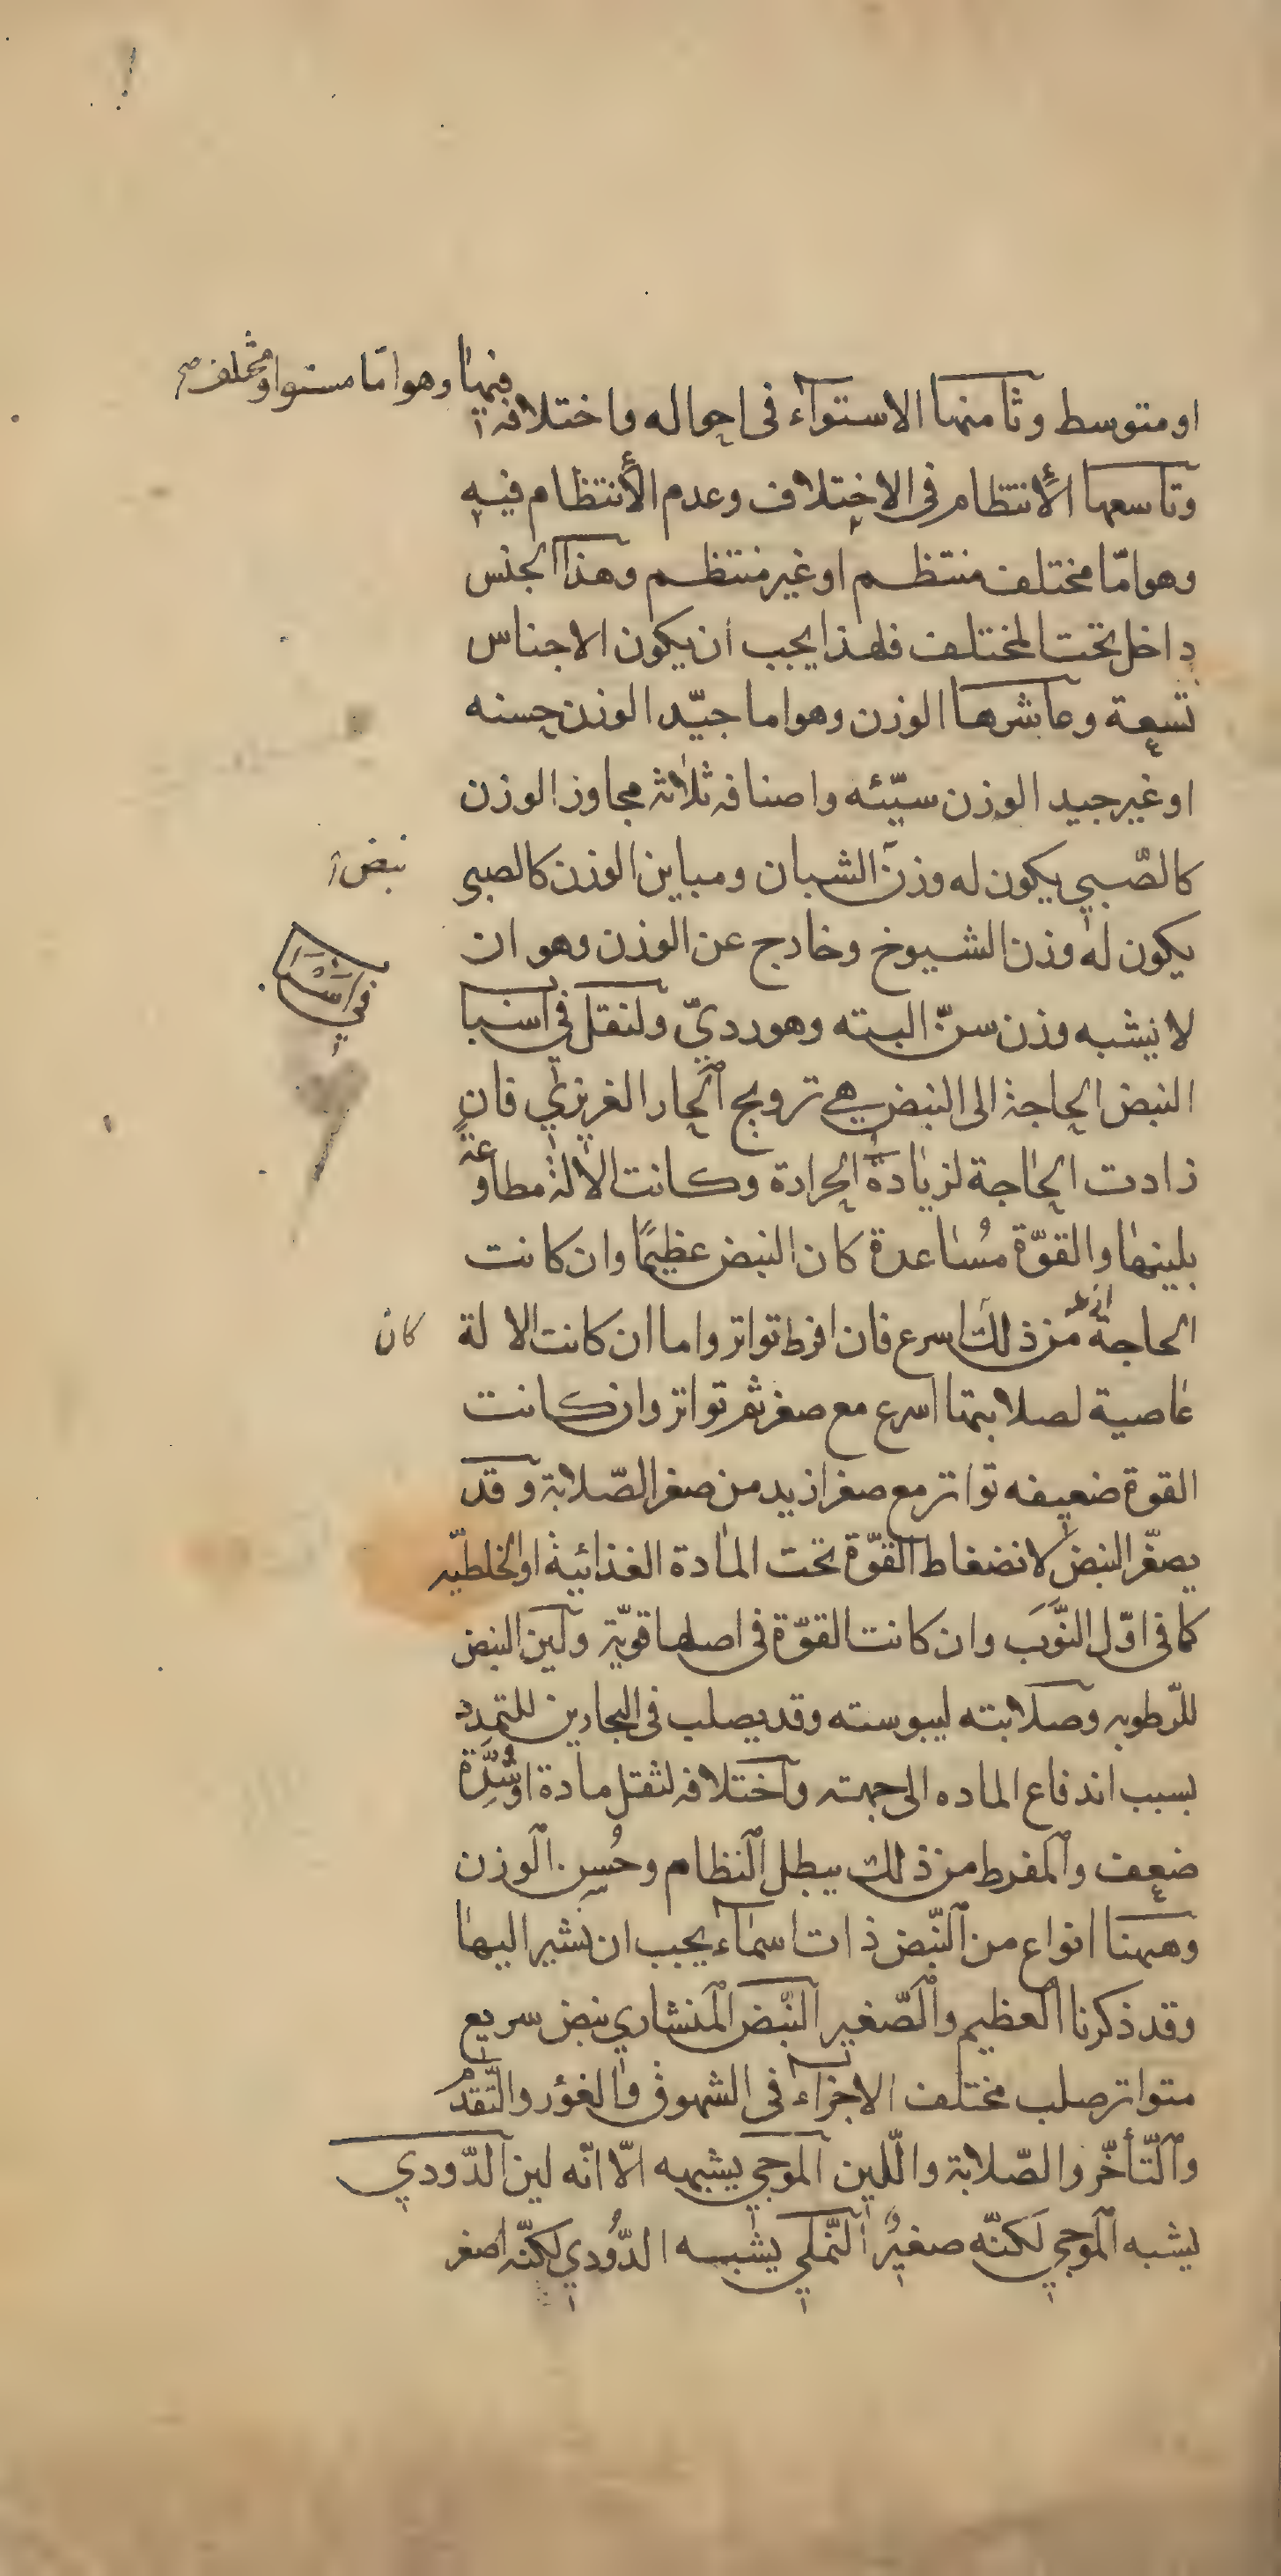 او متوسط وثامنها الاستوآء فى احواله واختلافه فيها وهو امّا مستو او مختلف صح
وتاسعها الأنتظام فى الاختلاف وعدم الأنتظام فيه
وهو امّا مختلف منتظم او غير منتظم وهذا الجنس
داخل تحت المختلف فلهذا يجب أن يكون الاجناس
تسعة وعاشرها الوزن وهو اما جيّد الوزن حسنه
او غير جيد الوزن سيّئه واصنافه ثلاثه مجاوز الوزن
كالصّبي يكون له وزن الشبان ومباين الوزن كالصبى
نبض
يكون له وزن الشيوخ وخارج عن الوزن وهو ان
لا يشبه وزن سنّ البته وهو رديّ ولنقل في اسبا
في اسباب
النبض الحاجة الى النبض هي ترويح الحار الغريزي فان
زادت الحاجة لزيادة الحرارة وكانت الالة مطاوعة
بلينها والقوّة مُساعدة كان النبض عظيمًا وان كانت
الحاجة ازيد من ذلك اسرع فان افرط تواتر واما ان كانت الالة
كان
عاصية لصلابتها اسرع مع صغر ثم تواتر وان كانت
القوة ضعيفه تواتر مع صغر ازيد من صغر الصّلابة وقد
يصغّر النبض لانضغاط القوّة تحت المادة الغذائية او الخلطيّه
كما فى اوّل النَّوَب وان كانت القوّة فى اصلها قويّة ولين النبض
للرّطوبه وصلابته ليبوسته وقد يصلب فى البحارين للتمدد
بسبب اندفاع الماده الى جهته واختلافه لثقل مادة او شِدَّة
ضعف والمفرط من ذلك يبطل النظام وحُسن الوزن
وههنا انواع من النّبض ذات اسمآء يجب ان نشير اليها
وقد ذكرنا العظيم والصّغير النّبض المنشاري نبض سريع
متواتر صلب مختلف الاجزآء فى الشهوق والغؤر والتّقدّم
والتّأخّر والصّلابة واللّين الموجي يشبهه الّا انّه لين الدّودي
يشبه الموجي لكنّه صغيرٌ النّملي يشبه الدُّودي لكنّه اصغر